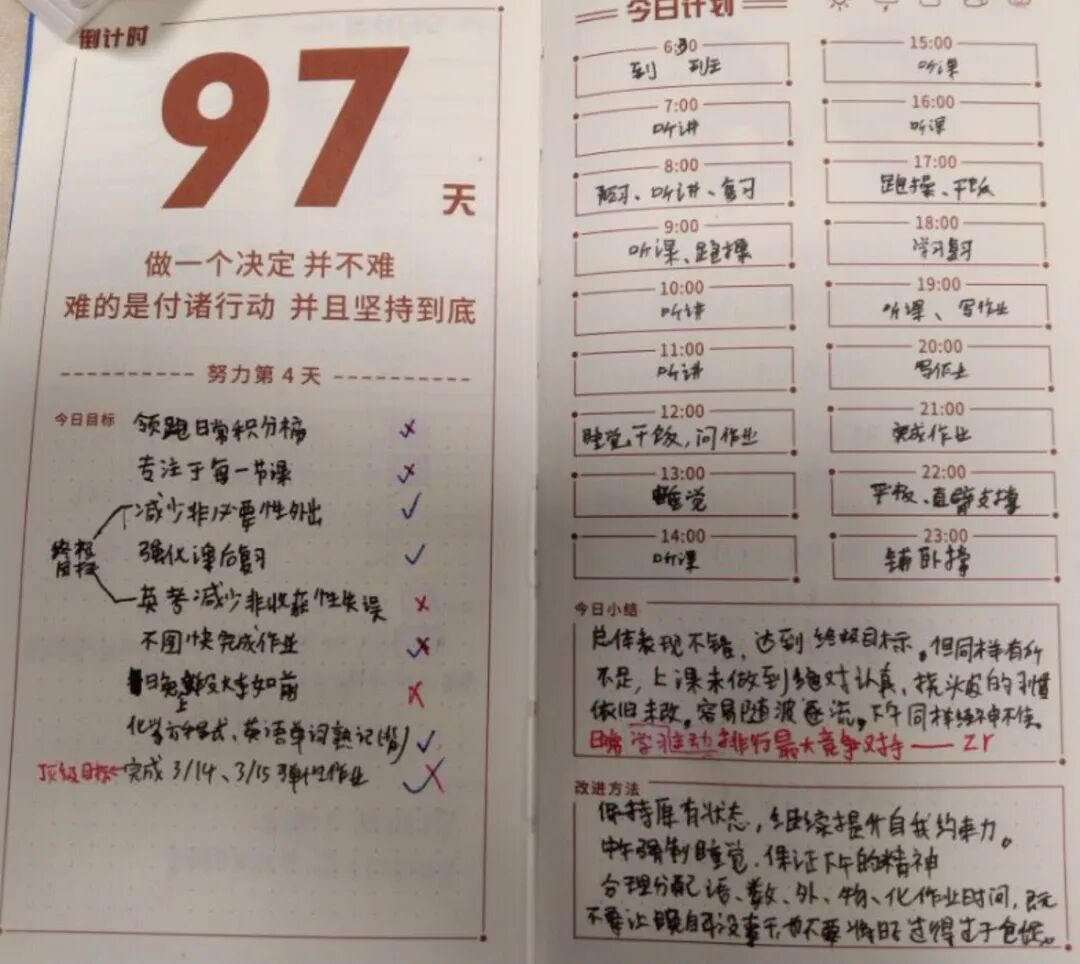 倒计时
97
天
做一个决定 并不难
难的是付诸行动 并且坚持到底
努力第 4 天
今日目标
领跑日常积分榜
专注于每一节课
减少非必要性外出
终极
目标
强化课后复习
英考减少非收获性失误
不图快完成作业
如前
化学方程式、英语单词熟记(背)
顶级目标
完成 3/14、3/15 弹性作业
今日计划
6:30
到 班
7:00
听讲
8:00
预习、听讲、复习
9:00
听课、跑操
10:00
听讲
11:00
听讲
12:00
睡觉、干饭，问作业
13:00
睡觉
14:00
听课
15:00
听课
16:00
听课
17:00
跑操、干饭
18:00
学习复习
19:00
听课、写作业
20:00
写作业
21:00
完成作业
22:00
平板、直臂支撑
23:00
俯卧撑
今日小结
总体表现不错，达到终极目标。但同样有所
不足，上课未做到绝对认真、挠头皮的习惯
依旧未改。容易随波逐流。下午同样精神不佳。
日常 学习主动 排行最大竞争对手 —— Zr
改进方法
保持原有状态，继续提升自我约束力。
中午强制睡觉，保证下午的精神
合理分配语、数、外、物、化作业时间，既
不要让晚自习没事干，也不要将日子过得过于仓促。